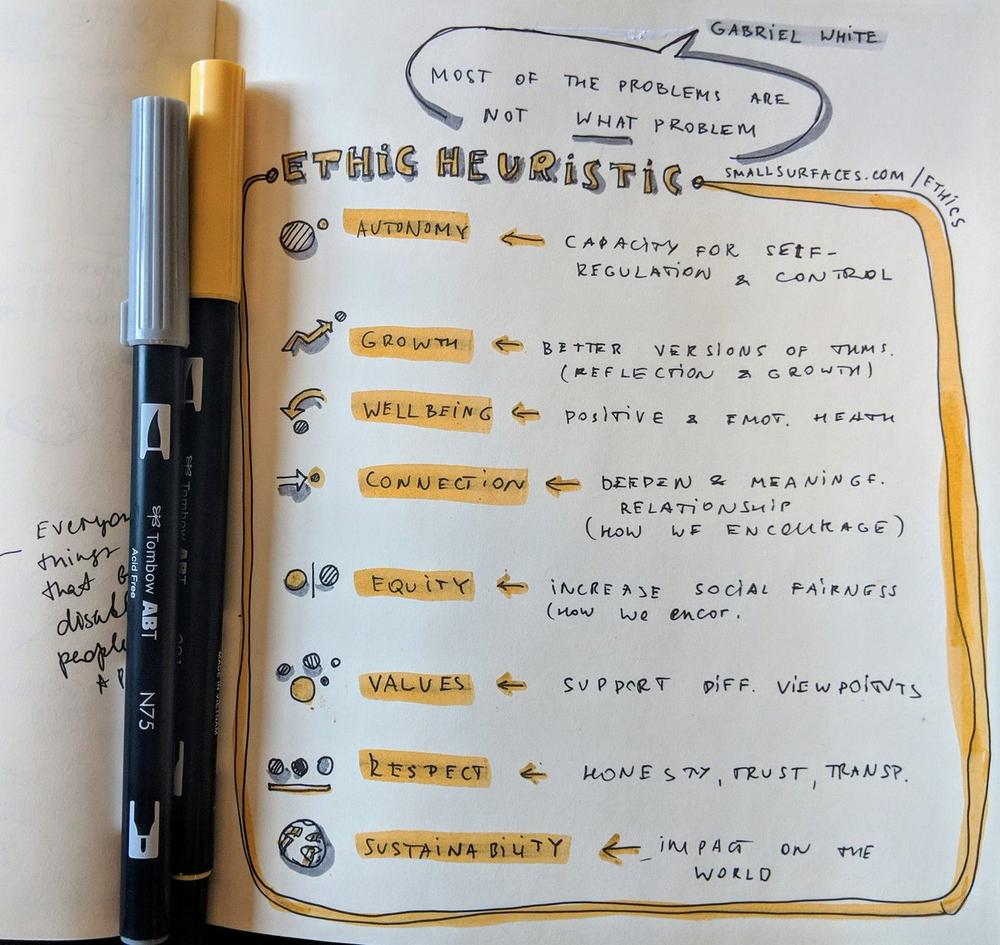 GABRIEL WHITE
MOST OF THE PROBLEMS ARE
NOT WHAT PROBLEM
ETHIC HEURISTIC
SMALLSURFACES.COM/ETHICS
AUTONOMY ← CAPACITY FOR SELF-
REGULATION & CONTROL
GROWTH ← BETTER VERSIONS OF THMS.
(REFLECTION & GROWTH)
WELLBEING ← POSITIVE & EMOT. HEATH
CONNECTION ← DEEPEN & MEANINGF.
RELATIONSHIP
(HOW WE ENCOURAGE)
EQUITY ← INCREASE SOCIAL FAIRNESS
(How we encor.
VALUES ← SUPPORT DIFF. VIEWPOINTS
RESPECT ← HONESTY, TRUST, TRANSP.
SUSTAINABILITY ← IMPACT ON THE
WORLD
things
that
people
Tombow ABT
Acid Free
N75
Tombow ABT
MADE IN VIETNAM